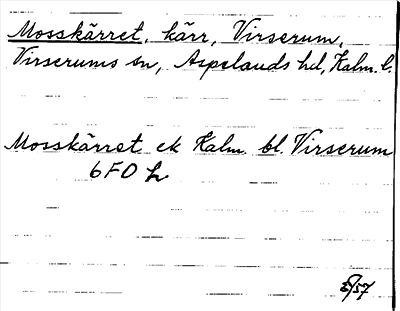 Mosskärret, kärr, Virserum,
Virserums sn, Aspelands hd, Kalm. l.
Mosskärret ek Kalm. bl. Virserum
6F0 h
5/57